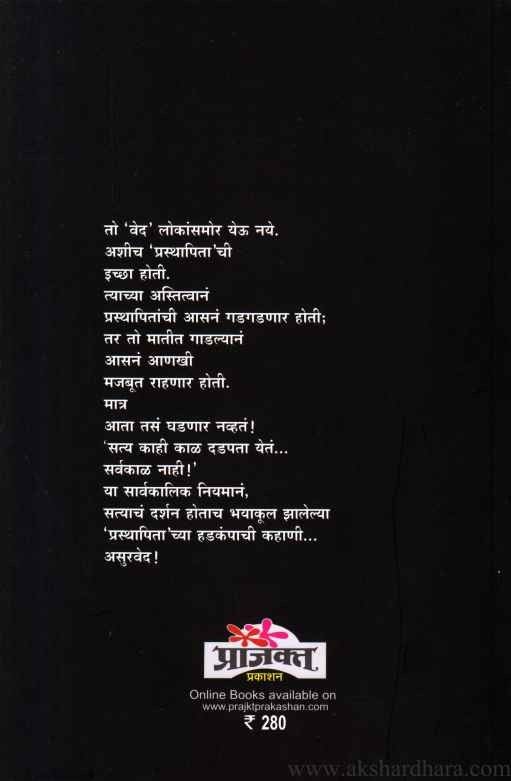 तो ‘वेद’ लोकांसमोर येऊ नये.
अशीच ‘प्रस्थापिता’ची
इच्छा होती.
त्याच्या अस्तित्वानं
प्रस्थापितांची आसनं गडगडणार होती;
तर तो मातीत गाडल्यानं
आसनं आणखी
मजबूत राहणार होती.
मात्र
आता तसं घडणार नव्हतं!
‘सत्य काही काळ दडपता येतं...
सर्वकाळ नाही!’
या सार्वकालिक नियमानं,
सत्याचं दर्शन होताच भयाकूल झालेल्या
‘प्रस्थापिता’च्या हडकंपाची कहाणी...
असुरवेद!
प्राजक्त
प्रकाशन
Online Books available on
www.prajktprakashan.com
₹ 280
www.akshardhara.com